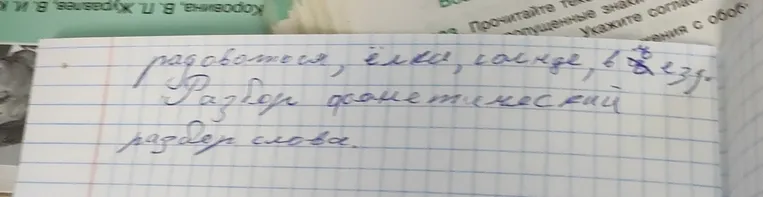 Коровина, В. П. Журавлев, В. И. К
Прочитайте те
опущенные знаки
Укажите соглас
жения с обоб-
радоваться, ёлки, солнце, въезд.
Разбор фонетический
разбор слова.